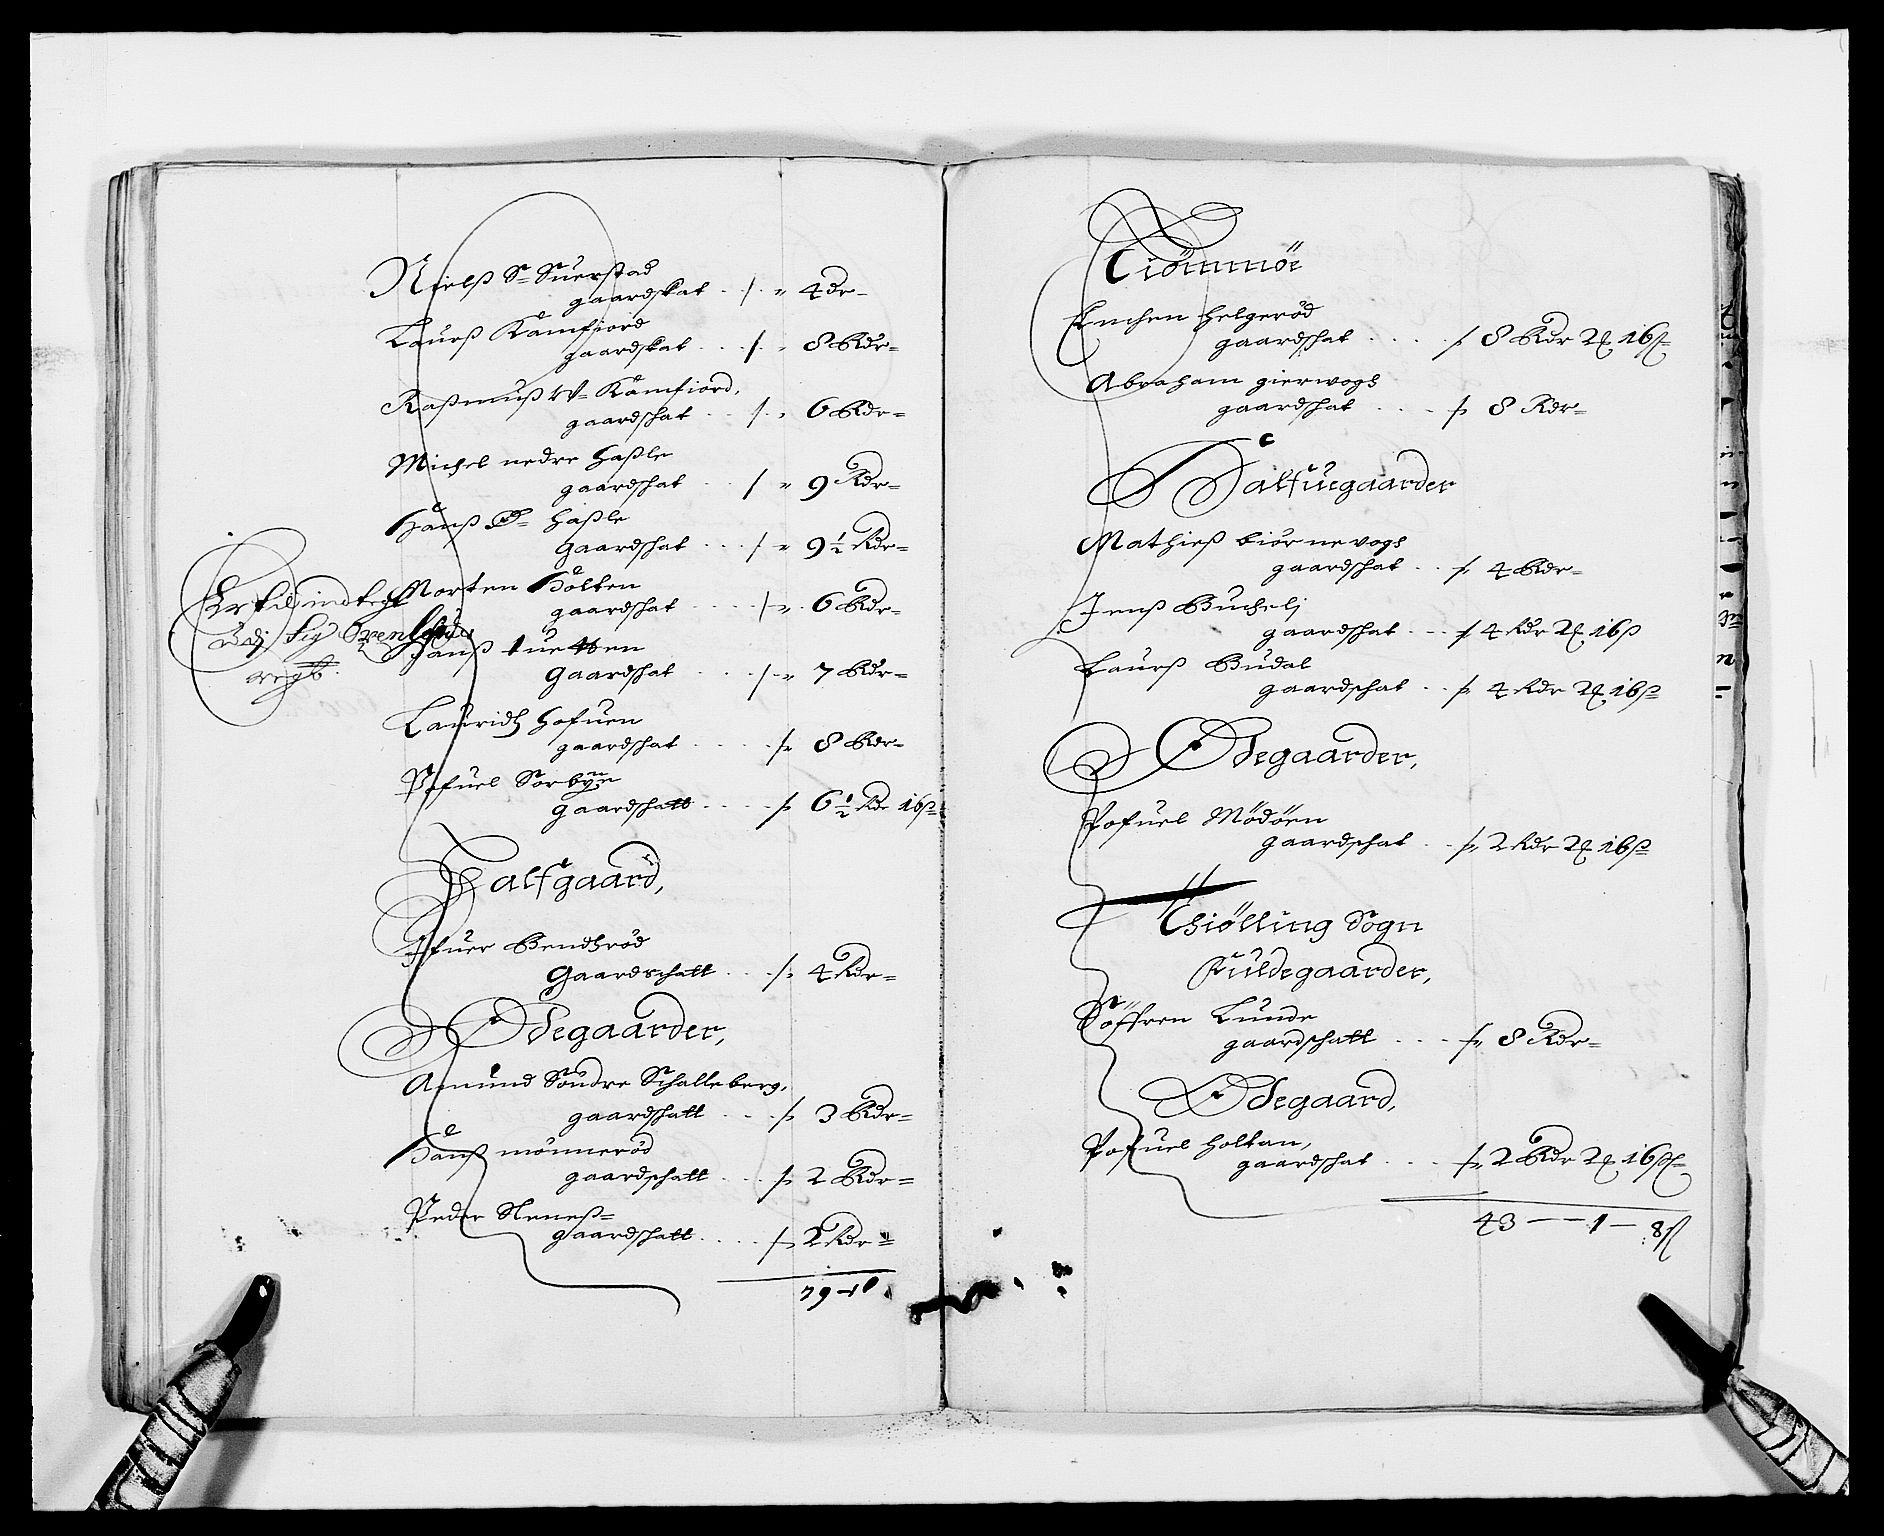 Nielß S= Suerstad
gaardskat . / . „ 4 dr=
Laurß Kamfiord
gaardskat . . . / . „ 8 Rdr=
Raßmuß W= Kamfiord,
gaardschat . . / . „ 6 Rdr=
Michel nedre Haßle
gaardschat . . / „ 9 Rdr=
Hanß Haßle
Gaardschat . . . / „ 9½ Rdr=
Morten Holten
gaardschat . . . . / „ 6 Rdr=
Hanß tuetten
Gaardschat . . . . / „ 7 Rdr=
Lauridtz Hofuen
gaardschat . . . . . / „ 8 Rdr=
Pofuel Sorbyen
Gaardschatt . . . . . / „ 6½ Rdr 16 ß=
Halfgaard,
Ifuer Bendhrød
Gaardschatt . . . / „ 4 Rdr=
Ødegaarder,
Amund Søndre Schalleberg,
gaardschatt . . . . / „ 3 Rdr=
Hanß mønnerød
gaardschatt . . . / „ 2 Rdr=
Peder Neneß=
gaardschatt . . . . / „ 2 Rdr=
79 –
Tiömmöe
Emchen Helgerød
gaardschat . . . . . / „ 8 Rdr 2 16 ß=
Abraham gierwogh
gaardschat . . . . / „ 8 Rdr=
Halfuegaarder
Mathieß biörnevogh
gaardschat . . / „ 4 Rdr=
Jenß Buchelj
gaardschat . . . / „ 4 Rdr 2 16 ß
Laurß Budal
gaardschat . . / „ 4 Rdr 2 16 ß=
Ødegaarder,
Pofuel Mödöen
gaardschat . . / „ 2 Rdr 2 16 ß=
Thiölling Sogn
Fuldegaarder,
Söffren Lunde
gaardschatt . . . . / „ 8 Rdr=
Ødegaard,
Pofuel Holtan,
gaardschat . . . . / „ 2 Rdr 2 16 ß=
43 – – 1 – 8 ß